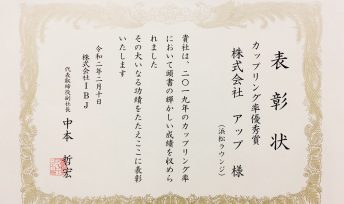 表彰状
カップリング率優秀賞
株式会社 アップ 様
（浜松ラウンジ）
貴社は、二〇一九年のカップリング率
において頭書の輝かしい成績を収めら
れました
その大いなる功績をたたえここに表彰
いたします
令和二年二月十日
株式会社ＩＢＪ
代表取締役副社長
中本 哲宏